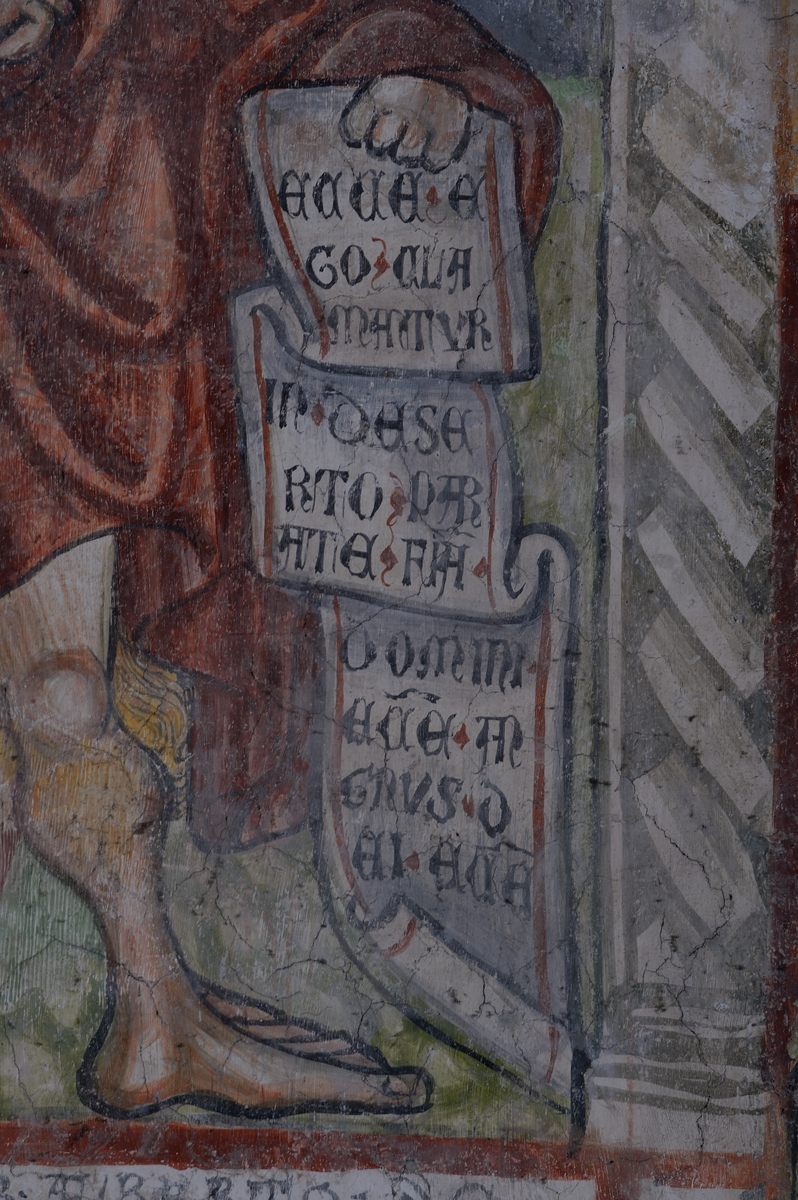 ECCE · E
GO · CLA
MATUR
IN · DESE
RTO · PAR
ATE · FIĀ ·
DOMINI ·
ECC̄E · AN
GNUS · D
EI · ECC̄E